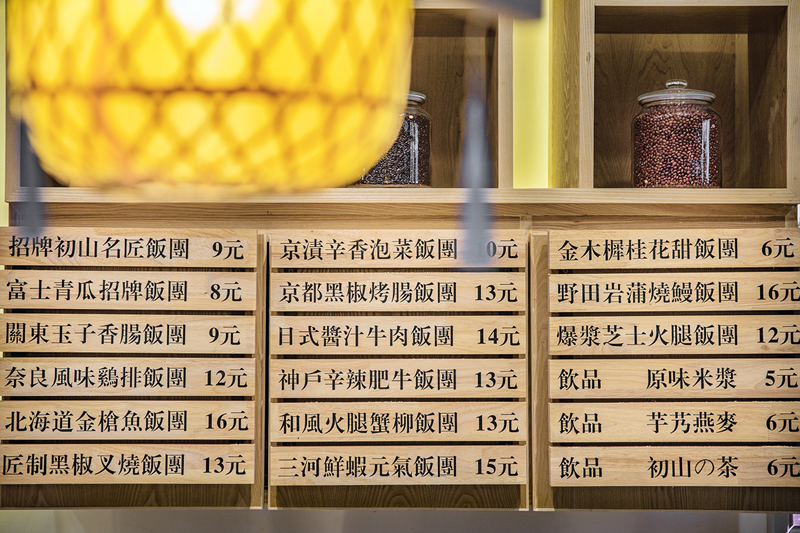 招牌初山名匠飯團 9元
富士青瓜招牌飯團 8元
關東玉子香腸飯團 9元
奈良風味鷄排飯團 12元
北海道金槍魚飯團 16元
匠制黑椒叉燒飯團 13元
京漬辛香泡菜飯團 0元
京都黑椒烤腸飯團 13元
日式醬汁牛肉飯團 14元
神戶辛辣肥牛飯團 13元
和風火腿蟹柳飯團 13元
三河鮮蝦元氣飯團 15元
金木樨桂花甜飯團 6元
野田岩蒲燒鰻飯團 16元
爆漿芝士火腿飯團 12元
飲品 原味米漿 5元
飲品 芋艿燕麥 6元
飲品 初山の茶 6元